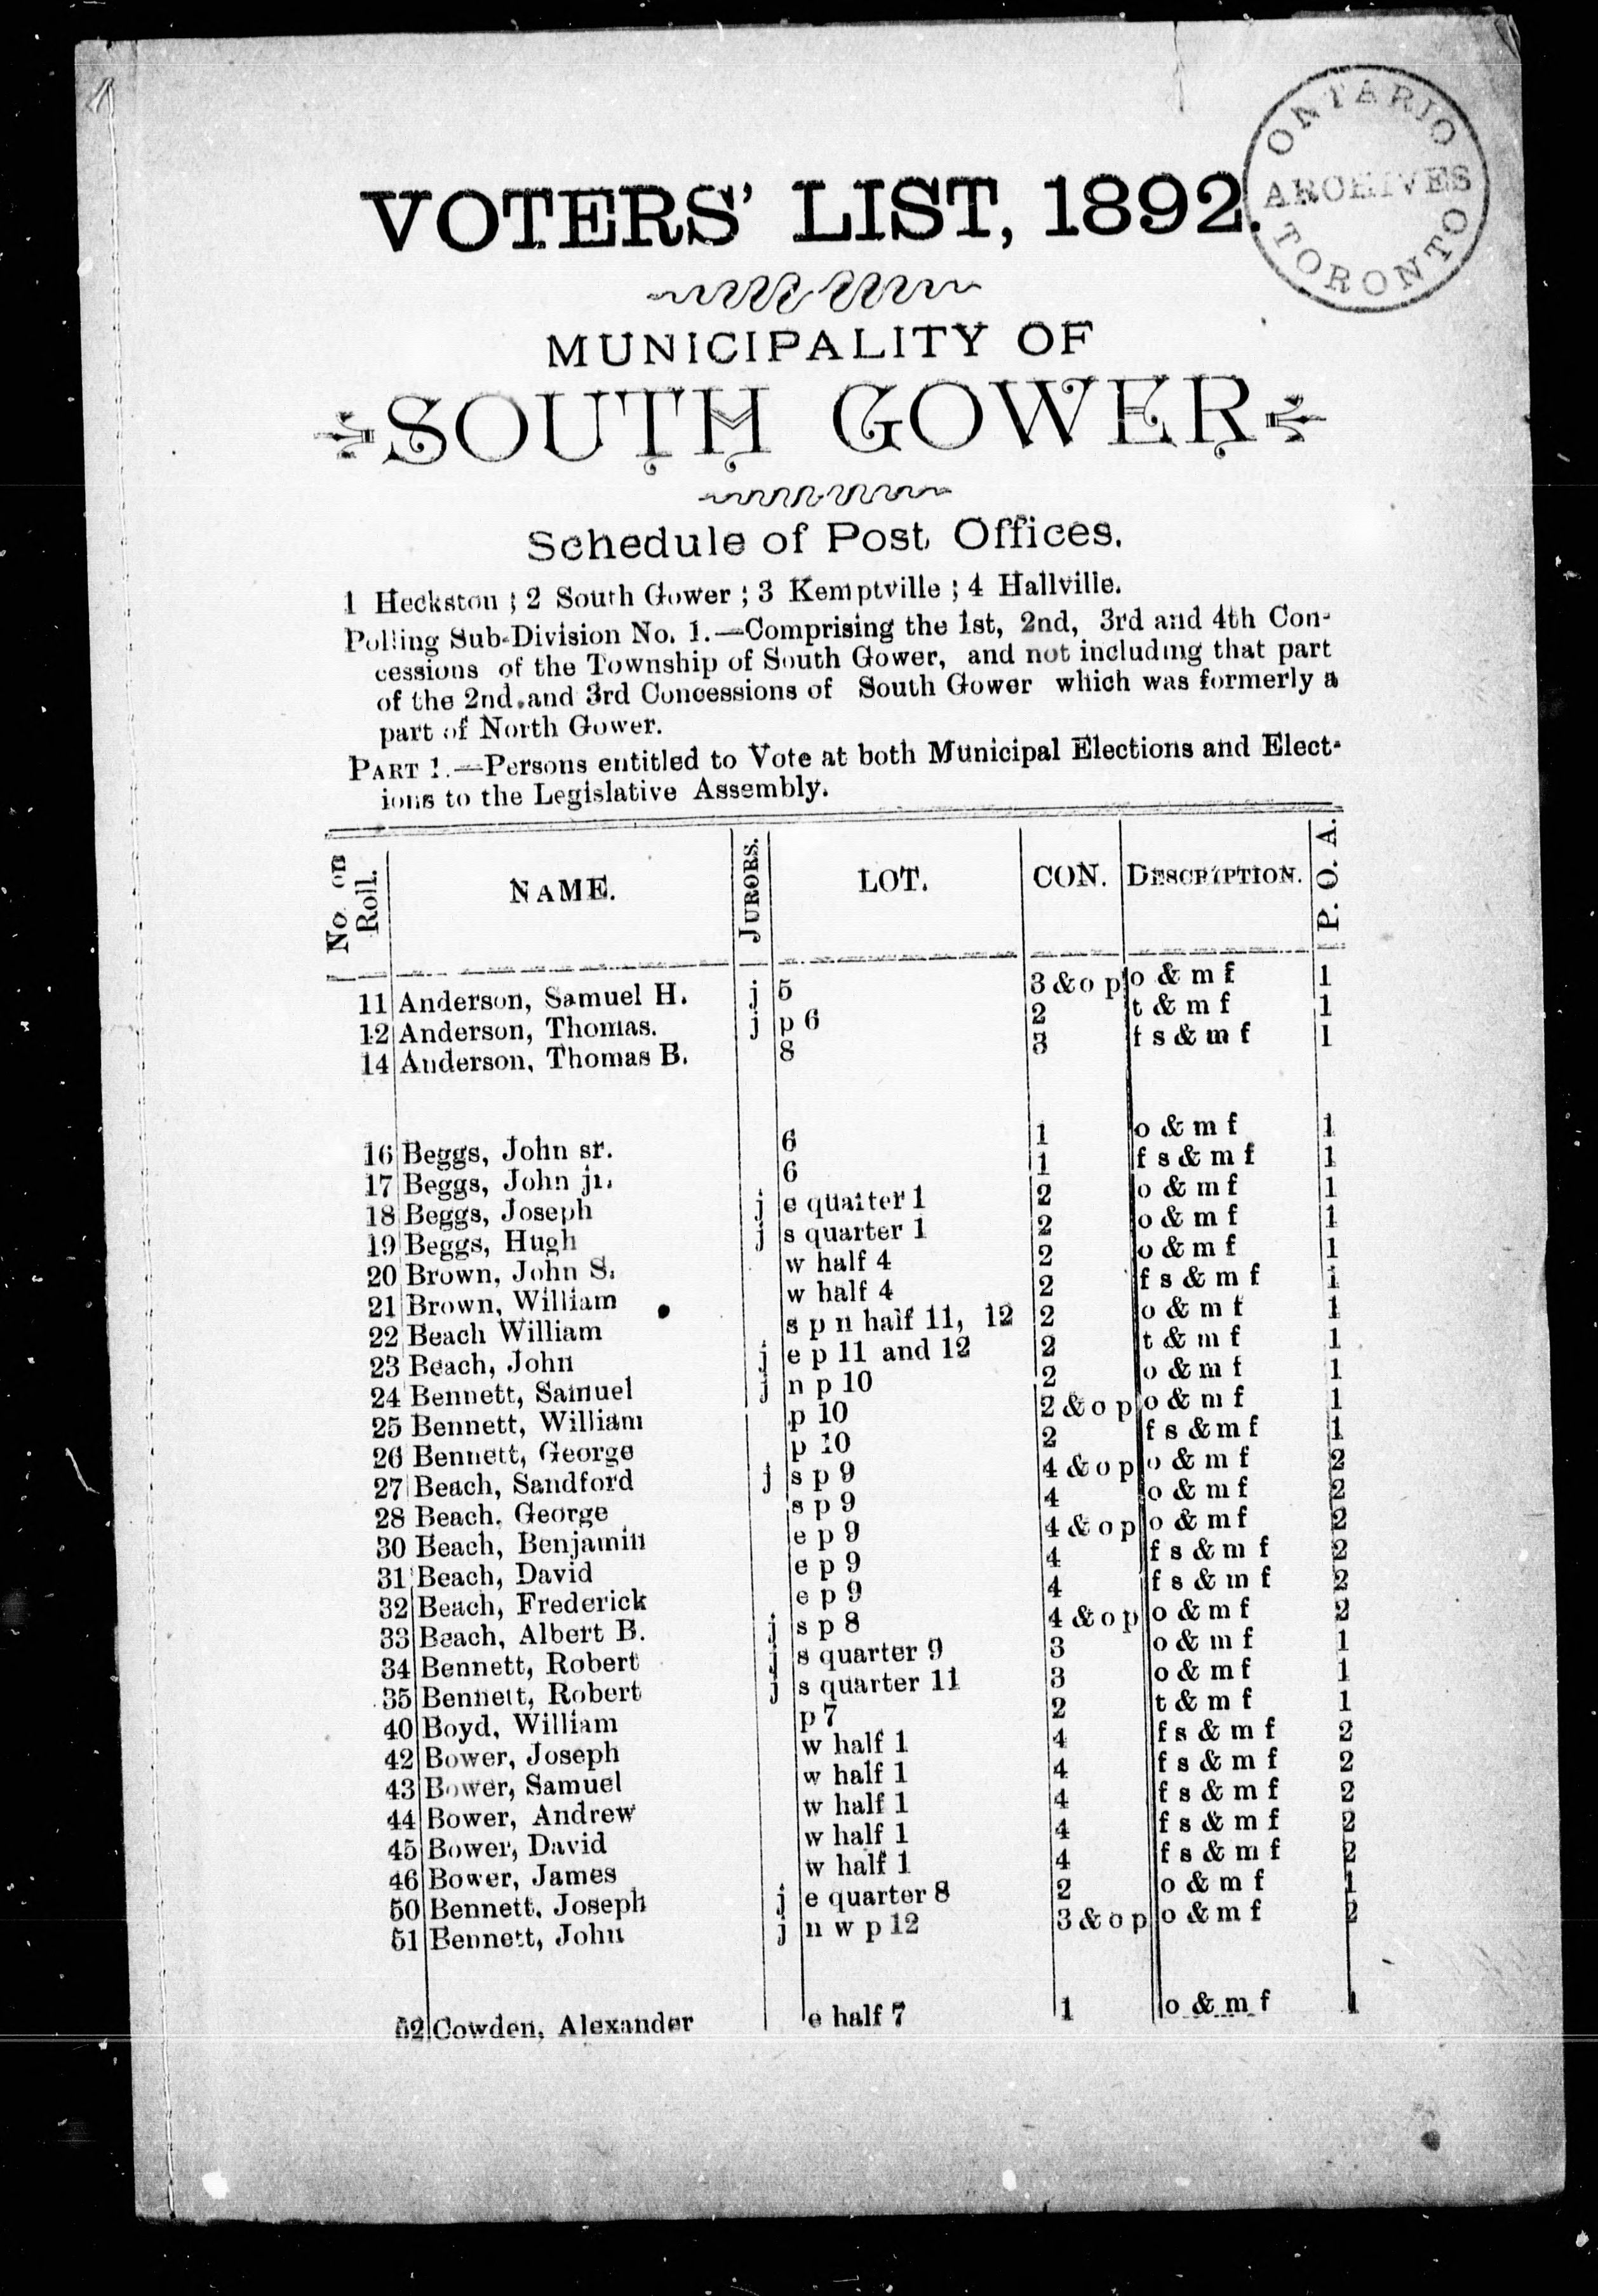 ONTARIO
ARCHIVES
TORONTO
VOTERS' LIST, 1892.
MUNICIPALITY OF
SOUTH GOWER
Schedule of Post Offices.
1 Heckston ; 2 South Gower ; 3 Kemptville ; 4 Hallville.
Polling Sub-Division No. 1.—Comprising the 1st, 2nd, 3rd and 4th Con-
cessions of the Township of South Gower, and not including that part
of the 2nd and 3rd Concessions of South Gower which was formerly a
part of North Gower.
PART 1.—Persons entitled to Vote at both Municipal Elections and Elect-
ions to the Legislative Assembly.
No. on Roll. NAME. JURORS. LOT. CON. DESCRIPTION. P. O. A.
11 Anderson, Samuel H. j 5 3 & o p o & m f 1
12 Anderson, Thomas. j p 6 2 t & m f 1
14 Anderson, Thomas B. 8 3 f s & m f 1
16 Beggs, John sr. 6 1 o & m f 1
17 Beggs, John jr. 6 1 f s & m f 1
18 Beggs, Joseph j e quarter 1 2 o & m f 1
19 Beggs, Hugh j s quarter 1 2 o & m f 1
20 Brown, John S. w half 4 2 o & m f 1
21 Brown, William w half 4 2 f s & m f 1
22 Beach William s p n half 11, 12 2 o & m f 1
23 Beach, John j e p 11 and 12 2 t & m f 1
24 Bennett, Samuel j n p 10 2 o & m f 1
25 Bennett, William p 10 2 & o p o & m f 1
26 Bennett, George p 10 2 f s & m f 1
27 Beach, Sandford j s p 9 4 & o p o & m f 2
28 Beach, George s p 9 4 o & m f 2
30 Beach, Benjamin e p 9 4 & o p o & m f 2
31 Beach, David e p 9 4 f s & m f 2
32 Beach, Frederick e p 9 4 f s & m f 2
33 Beach, Albert B. j s p 8 4 & o p o & m f 2
34 Bennett, Robert j s quarter 9 3 o & m f 1
35 Bennett, Robert j s quarter 11 3 o & m f 1
40 Boyd, William p 7 2 t & m f 1
42 Bower, Joseph w half 1 4 f s & m f 2
43 Bower, Samuel w half 1 4 f s & m f 2
44 Bower, Andrew w half 1 4 f s & m f 2
45 Bower, David w half 1 4 f s & m f 2
46 Bower, James w half 1 4 f s & m f 2
50 Bennett, Joseph j e quarter 8 2 o & m f 1
51 Bennett, John j n w p 12 3 & o p o & m f 2
52 Cowden, Alexander e half 7 1 o & m f 1